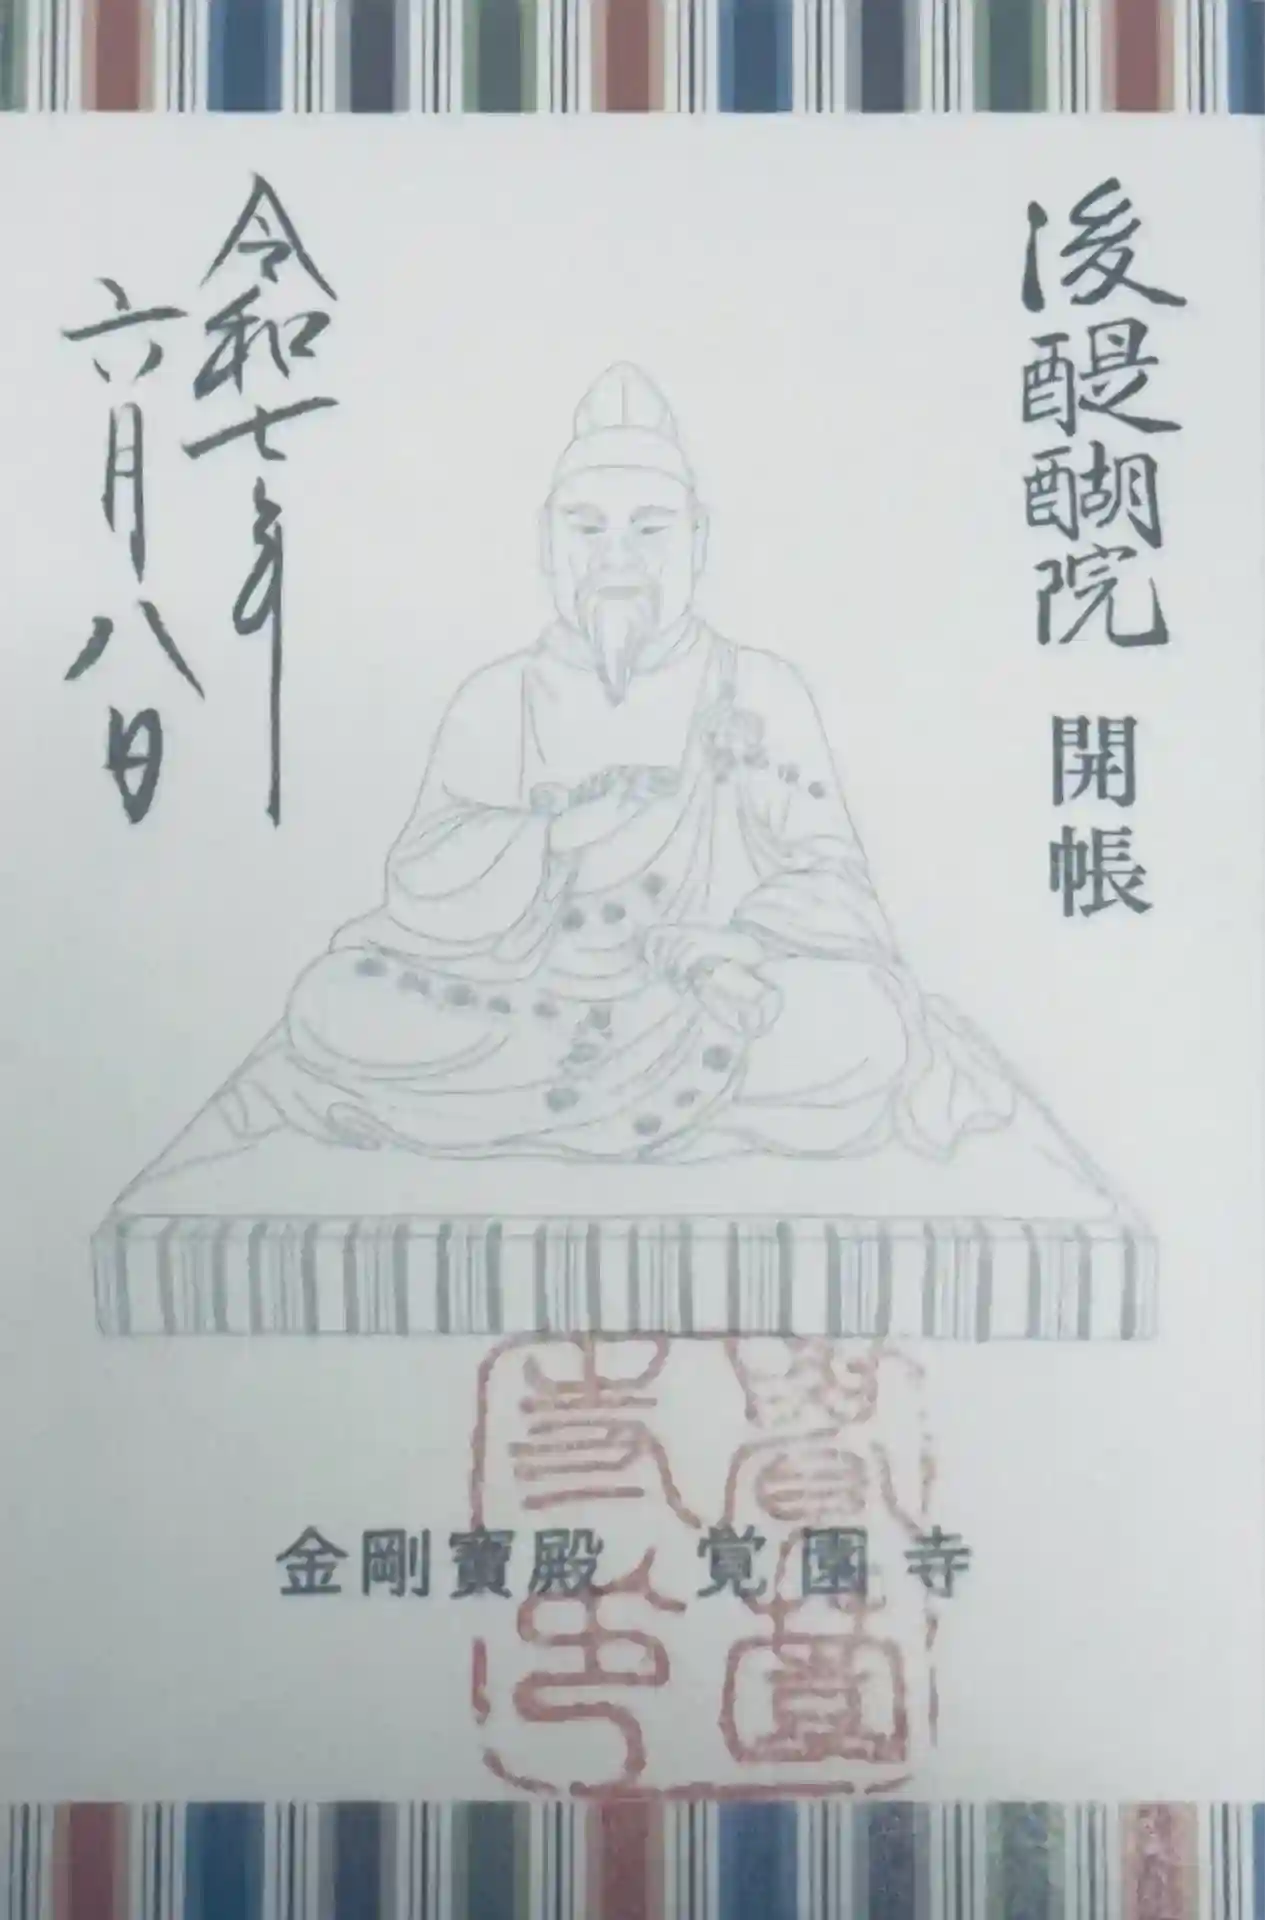 後醍醐院 開帳
令和七年
六月八日
金剛寳殿 覚園寺
覺園
寺印